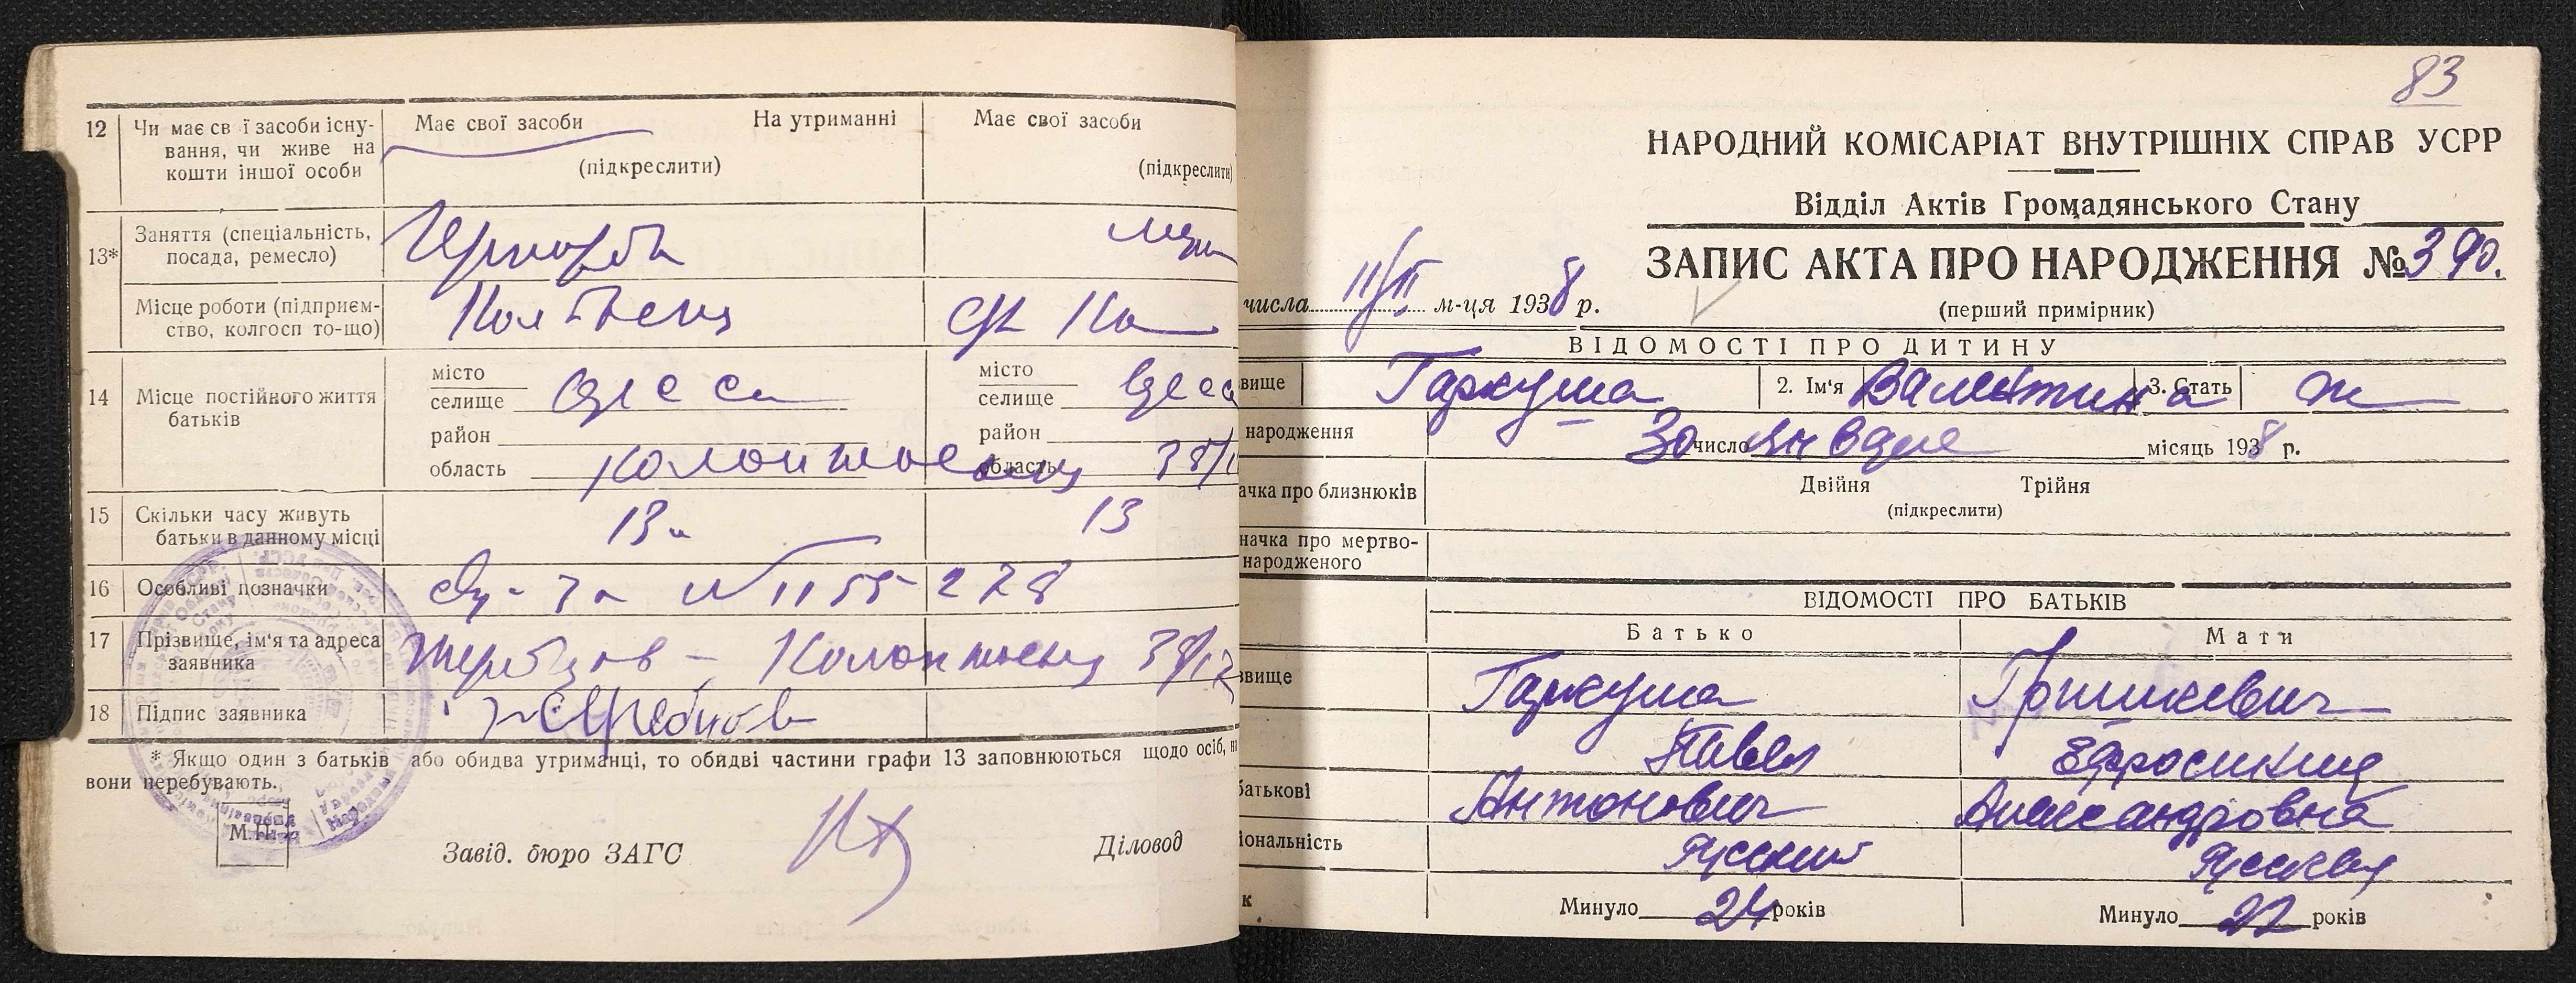 12 Чи має св ї засоби існу- Має свої засоби На утриманні Має свої засоби
вання, чи живе на
кошти іншої особи (підкреслити) (підкреслити)
13* Заняття (спеціальність,
посада, ремесло)
Місце роботи (підприєм-
ство, колгосп то-що)
14 Місце постійного життя
батьків
місто місто
селище Одесса селище Одесс
район район
область область 38/1
15 Скільки часу живуть
батьки в данному місці 13 13
16 Особливі позначки № 1155 278
17 Прізвище, ім'я та адреса
заявника 38/12
18 Підпис заявника
* Якщо один з батьків або обидва утриманці, то обидві частини графи 13 заповнюються щодо осіб, н
вони перебувають.
М.П.
Завід. бюро ЗАГС Діловод
83
НАРОДНИЙ КОМІСАРІАТ ВНУТРІШНІХ СПРАВ УСРР
Відділ Актів Громадянського Стану
ЗАПИС АКТА ПРО НАРОДЖЕННЯ № 390.
(перший примірник)
числа 11/II м-ця 1938 р.
ВІДОМОСТІ ПРО ДИТИНУ
звище Гаркуша 2. Ім'я Валентина 3. Стать ж
народження 30 число января місяць 1938 р.
ачка про близнюків Двійня Трійня
(підкреслити)
начка про мертво-
народженого
ВІДОМОСТІ ПРО БАТЬКІВ
Батько Мати
звище Гаркуша Гришкевич
Павел Ефросиния
батькові Антонович Александровна
іональність Русский Русская
к Минуло 24 років Минуло 22 років